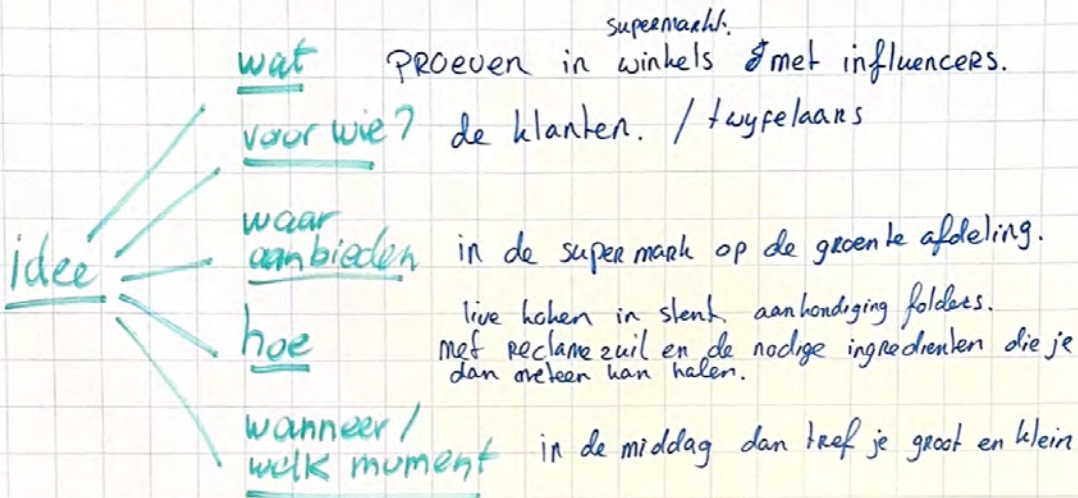 supermarkt.
wat PROEVEN in winkels met influencers.
voor wie? de klanten. / twyfelaars
waar
aanbieden in de supermark op de groente afdeling.
idee
live koken in stent aankondiging folders.
hoe met reclame zuil en de nodige ingredienten die je
dan meteen kan halen.
wanneer /
welk mument in de middag dan tref je groot en klein